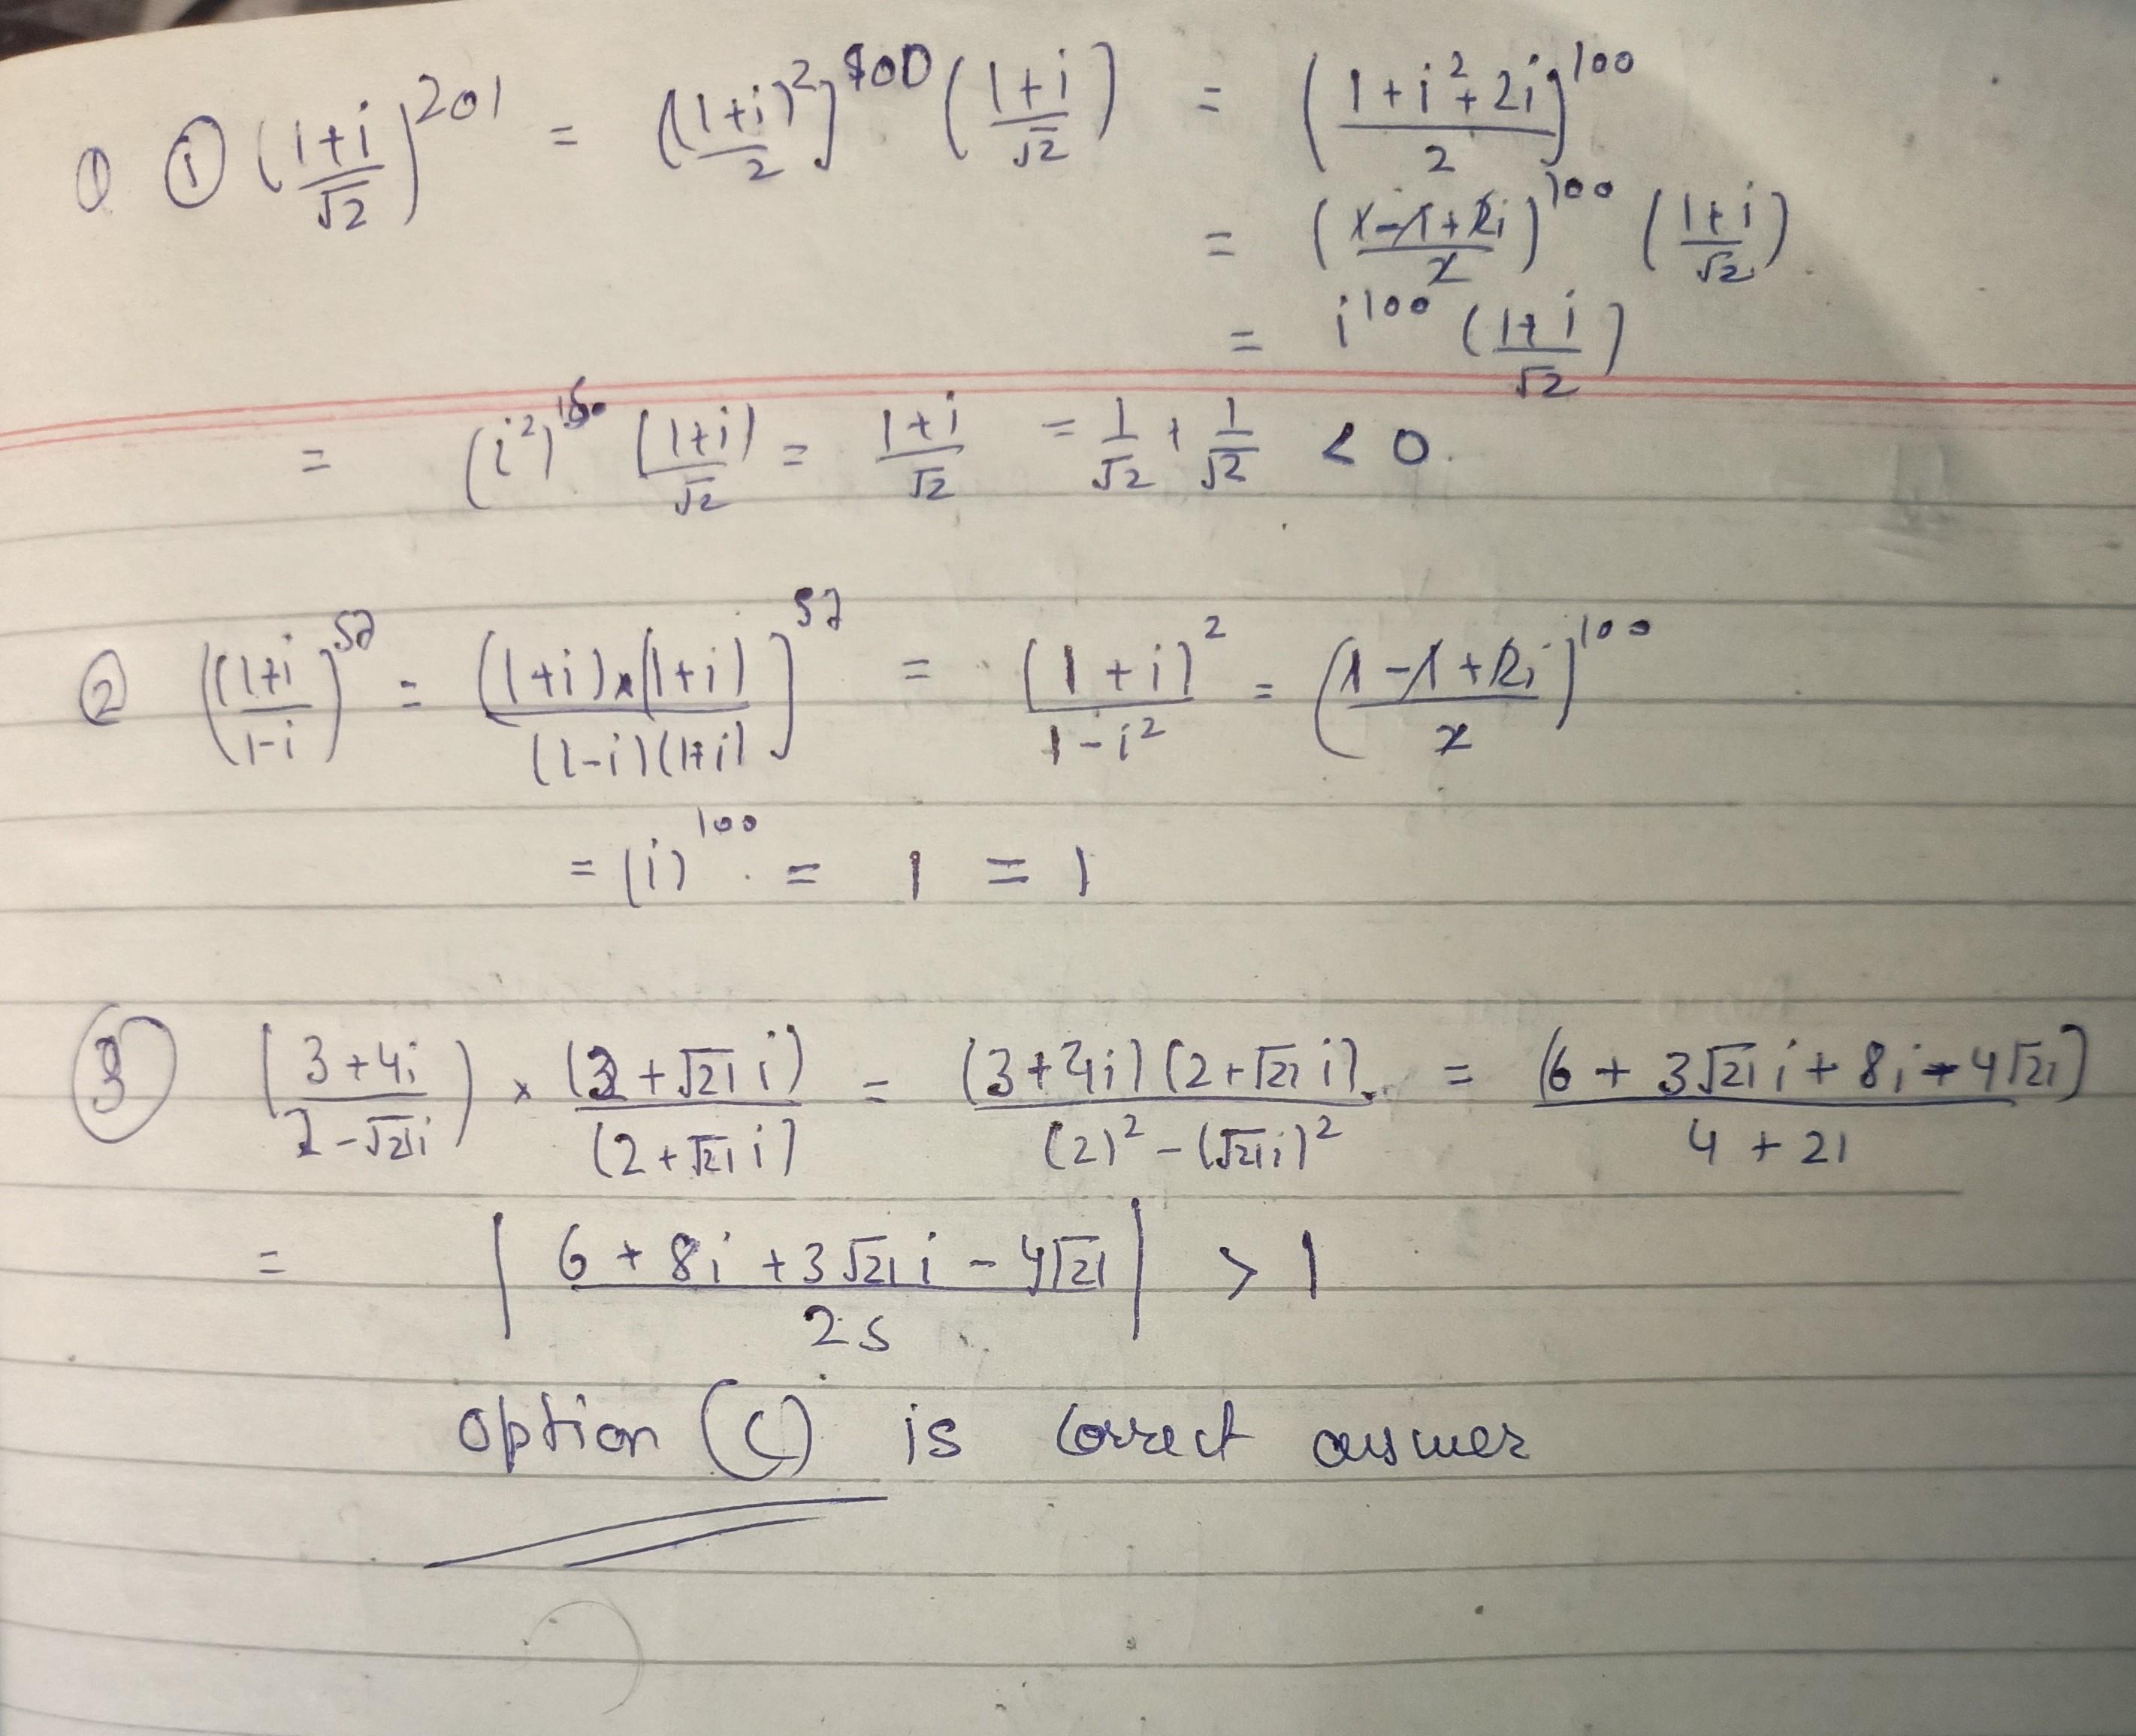 ① ① ((1+i)/√2)^201 = ((1+i)^2/2)^100 ((1+i)/√2) = ((1+i^2+2i)/2)^100
= ((1-1+2i)/2)^100 ((1+i)/√2)
= i^100 ((1+i)/√2)
= (i^2)^50 ((1+i)/√2) = (1+i)/√2 = 1/√2 + 1/√2 < 0.
② ((1+i)/(1-i))^52 = ((1+i)×(1+i)/(1-i)(1+i))^52 = (1+i)^2/(1-i^2) = ((1-1+2i)/2)^100
= (i)^100 = 1 = 1
③ ((3+4i)/(2-√21i)) × (2+√21 i)/(2+√21 i) = (3+4i)(2+√21 i)/((2)^2-(√21i)^2) = (6+3√21 i+8i-4√21)/(4+21)
= |(6+8i+3√21 i-4√21)/25| > 1
option (C) is correct answer